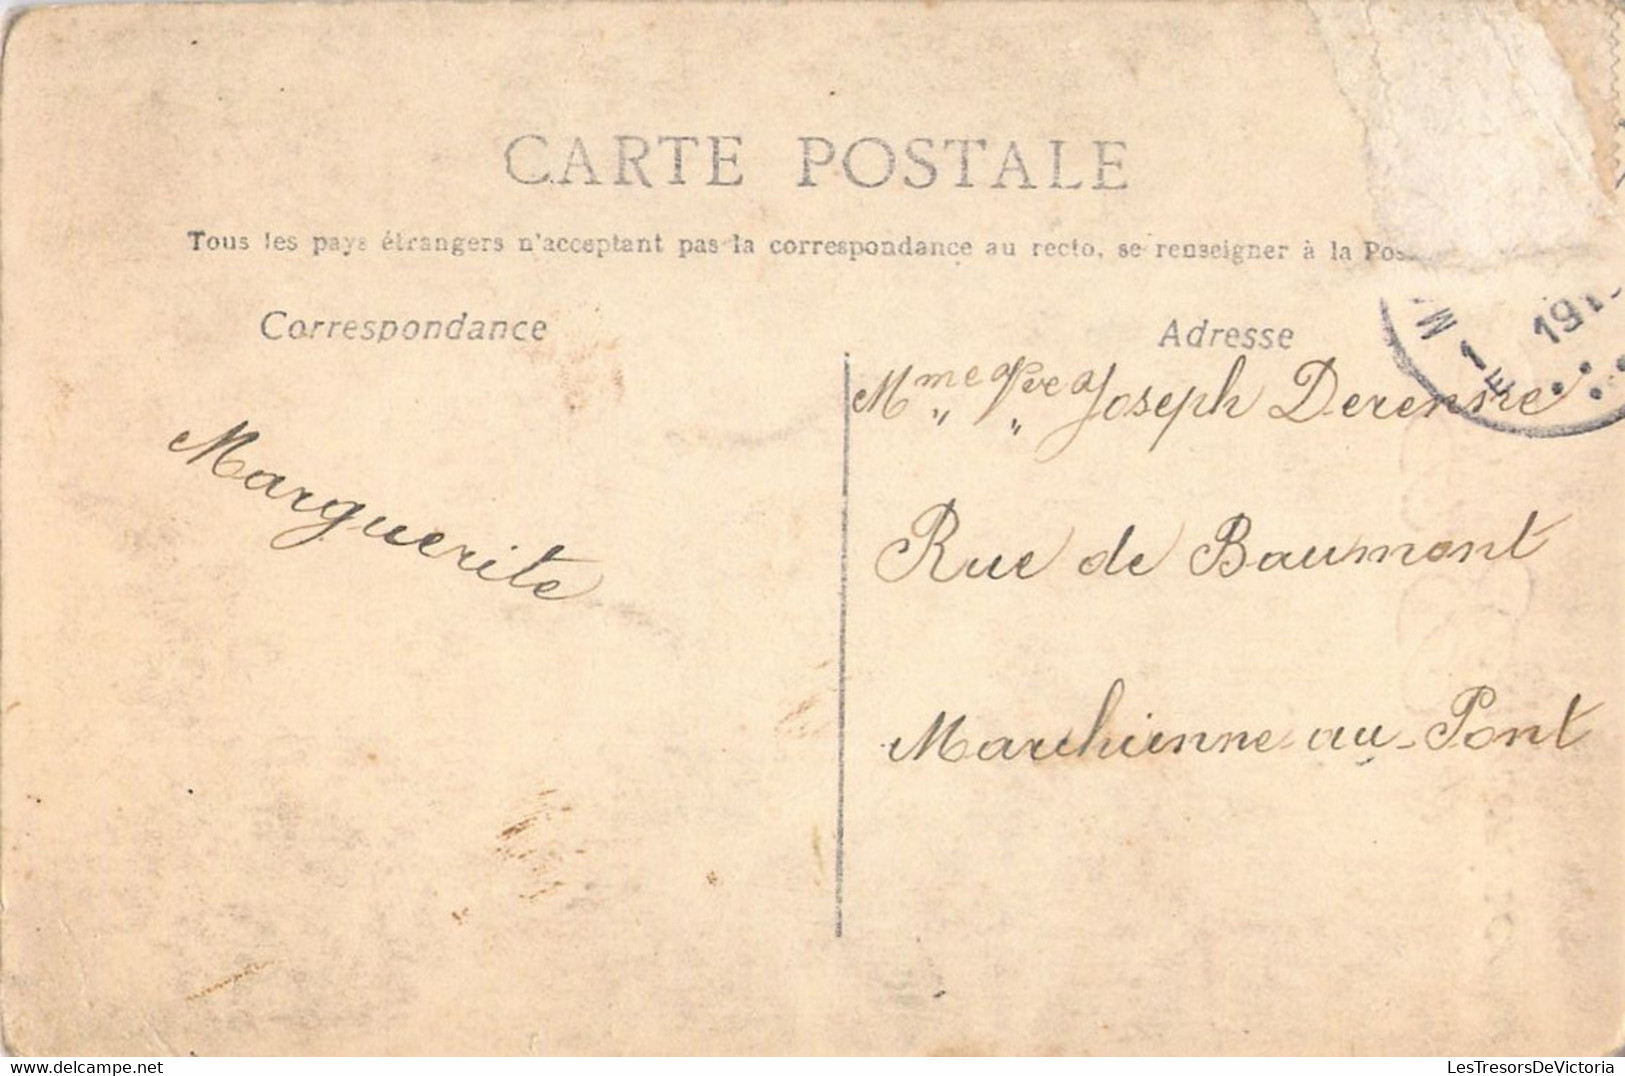 CARTE POSTALE
Tous les pays étrangers n'acceptant pas la correspondance au recto, se renseigner à la Pos
Correspondance
Adresse
Mme Vve Joseph Derenne
Marguerite
Rue de Baumont
Marchienne-au-Pont
LesTresorsDeVictoria